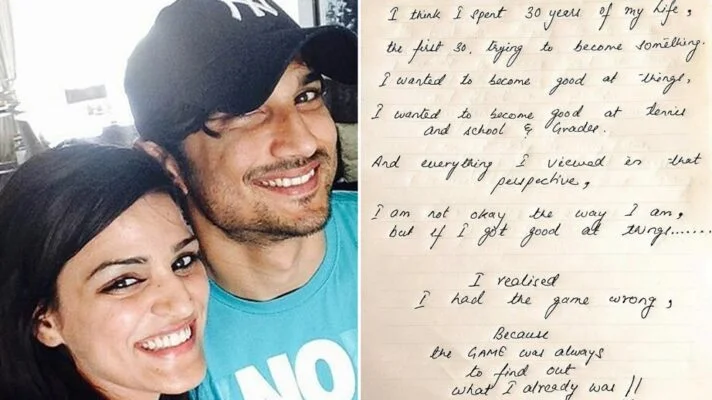 NY
NO
I think I spent 30 years of my life,
the first 30, trying to become something.
I wanted to become good at things,
I wanted to become good at tennis
and school & Grades.
And everything I viewed in that
perspective,
I am not okay the way I am,
but if I got good at things.......
I realised
I had the game wrong,
Because
the GAME was always
to find out
what I already was !!